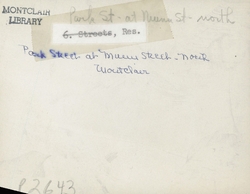 MONTCLAIR
LIBRARY
Park St - at Munn St - north
6. Streets, Res.
Park Street at Munn Street - North
Montclair
P2643